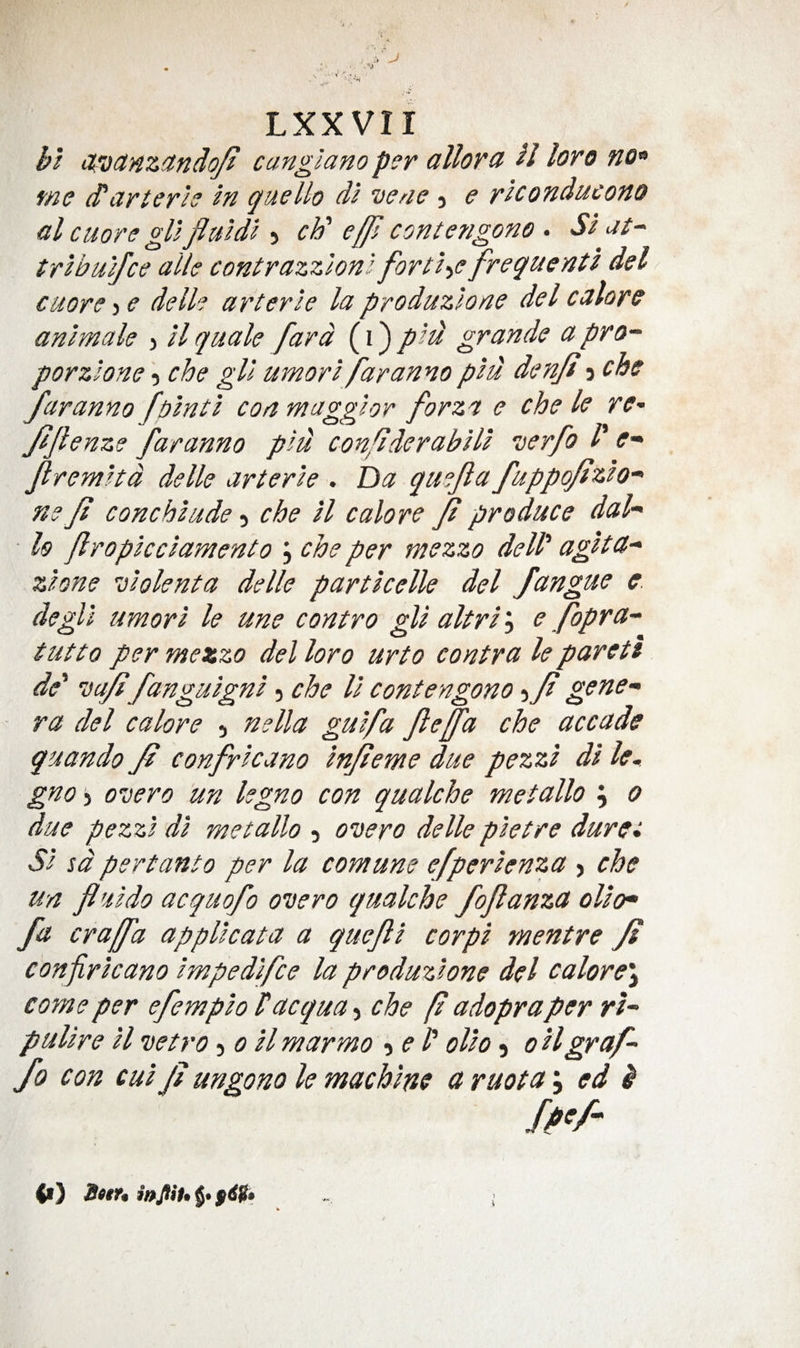 LXXVII
bi avanzandoſi cangiano per allora il loro no-
me d'arterie in quello di vene, e riconducono
al cuore gli fluidi, ch' eſſi contengono. Si at-
tribuiſce alle contrazzioni forti, e frequenti del
cuore, e delle arterie la produzione del calore
animale, il quale ſarà (1) più grande a pro-
porzione, che gli umori ſaranno più denſi, che
ſaranno ſpinti con maggior forza e che le re-
ſiſtenze ſaranno più conſiderabili verſo l' e-
ſtremità delle arterie. Da queſta ſuppoſizio-
ne ſi conchiude, che il calore ſi produce dal-
lo ſtropicciamento; che per mezzo dell' agita-
zione violenta delle particelle del ſangue e
degli umori le une contro gli altri; e ſopra-
tutto per mezzo del loro urto contra le pareti
de' vaſi ſanguigni, che li contengono, ſi gene-
ra del calore, nella guiſa ſteſſa che accade
quando ſi confricano inſieme due pezzi di le-
gno, overo un legno con qualche metallo; o
due pezzi di metallo, overo delle pietre dure:
Si sà pertanto per la comune eſperienza, che
un fluido acquoſo overo qualche ſoſtanza olio-
ſa craſſa applicata a queſti corpi mentre ſi
confiricano impediſce la produzione del calore;
come per eſempio l'acqua, che ſi adopra per ri-
pulire il vetro, o il marmo, e l' olio, o il graſ-
ſo con cui ſi ungono le machine a ruota; ed è
ſpeſ-
(1) Boer. inſtit. §.